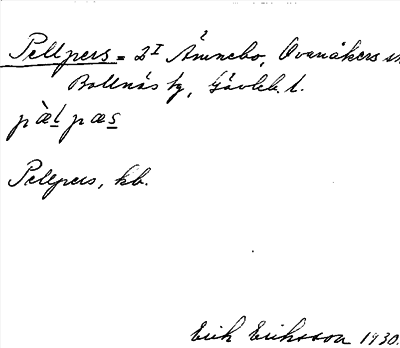 Pellpers = 2 I Ämnebo, Ovanåkers sn
Bollnäs tg, Gävleb. l.
pæ̀l pæs
Pellpers, kb.
Erik Eriksson 1930.